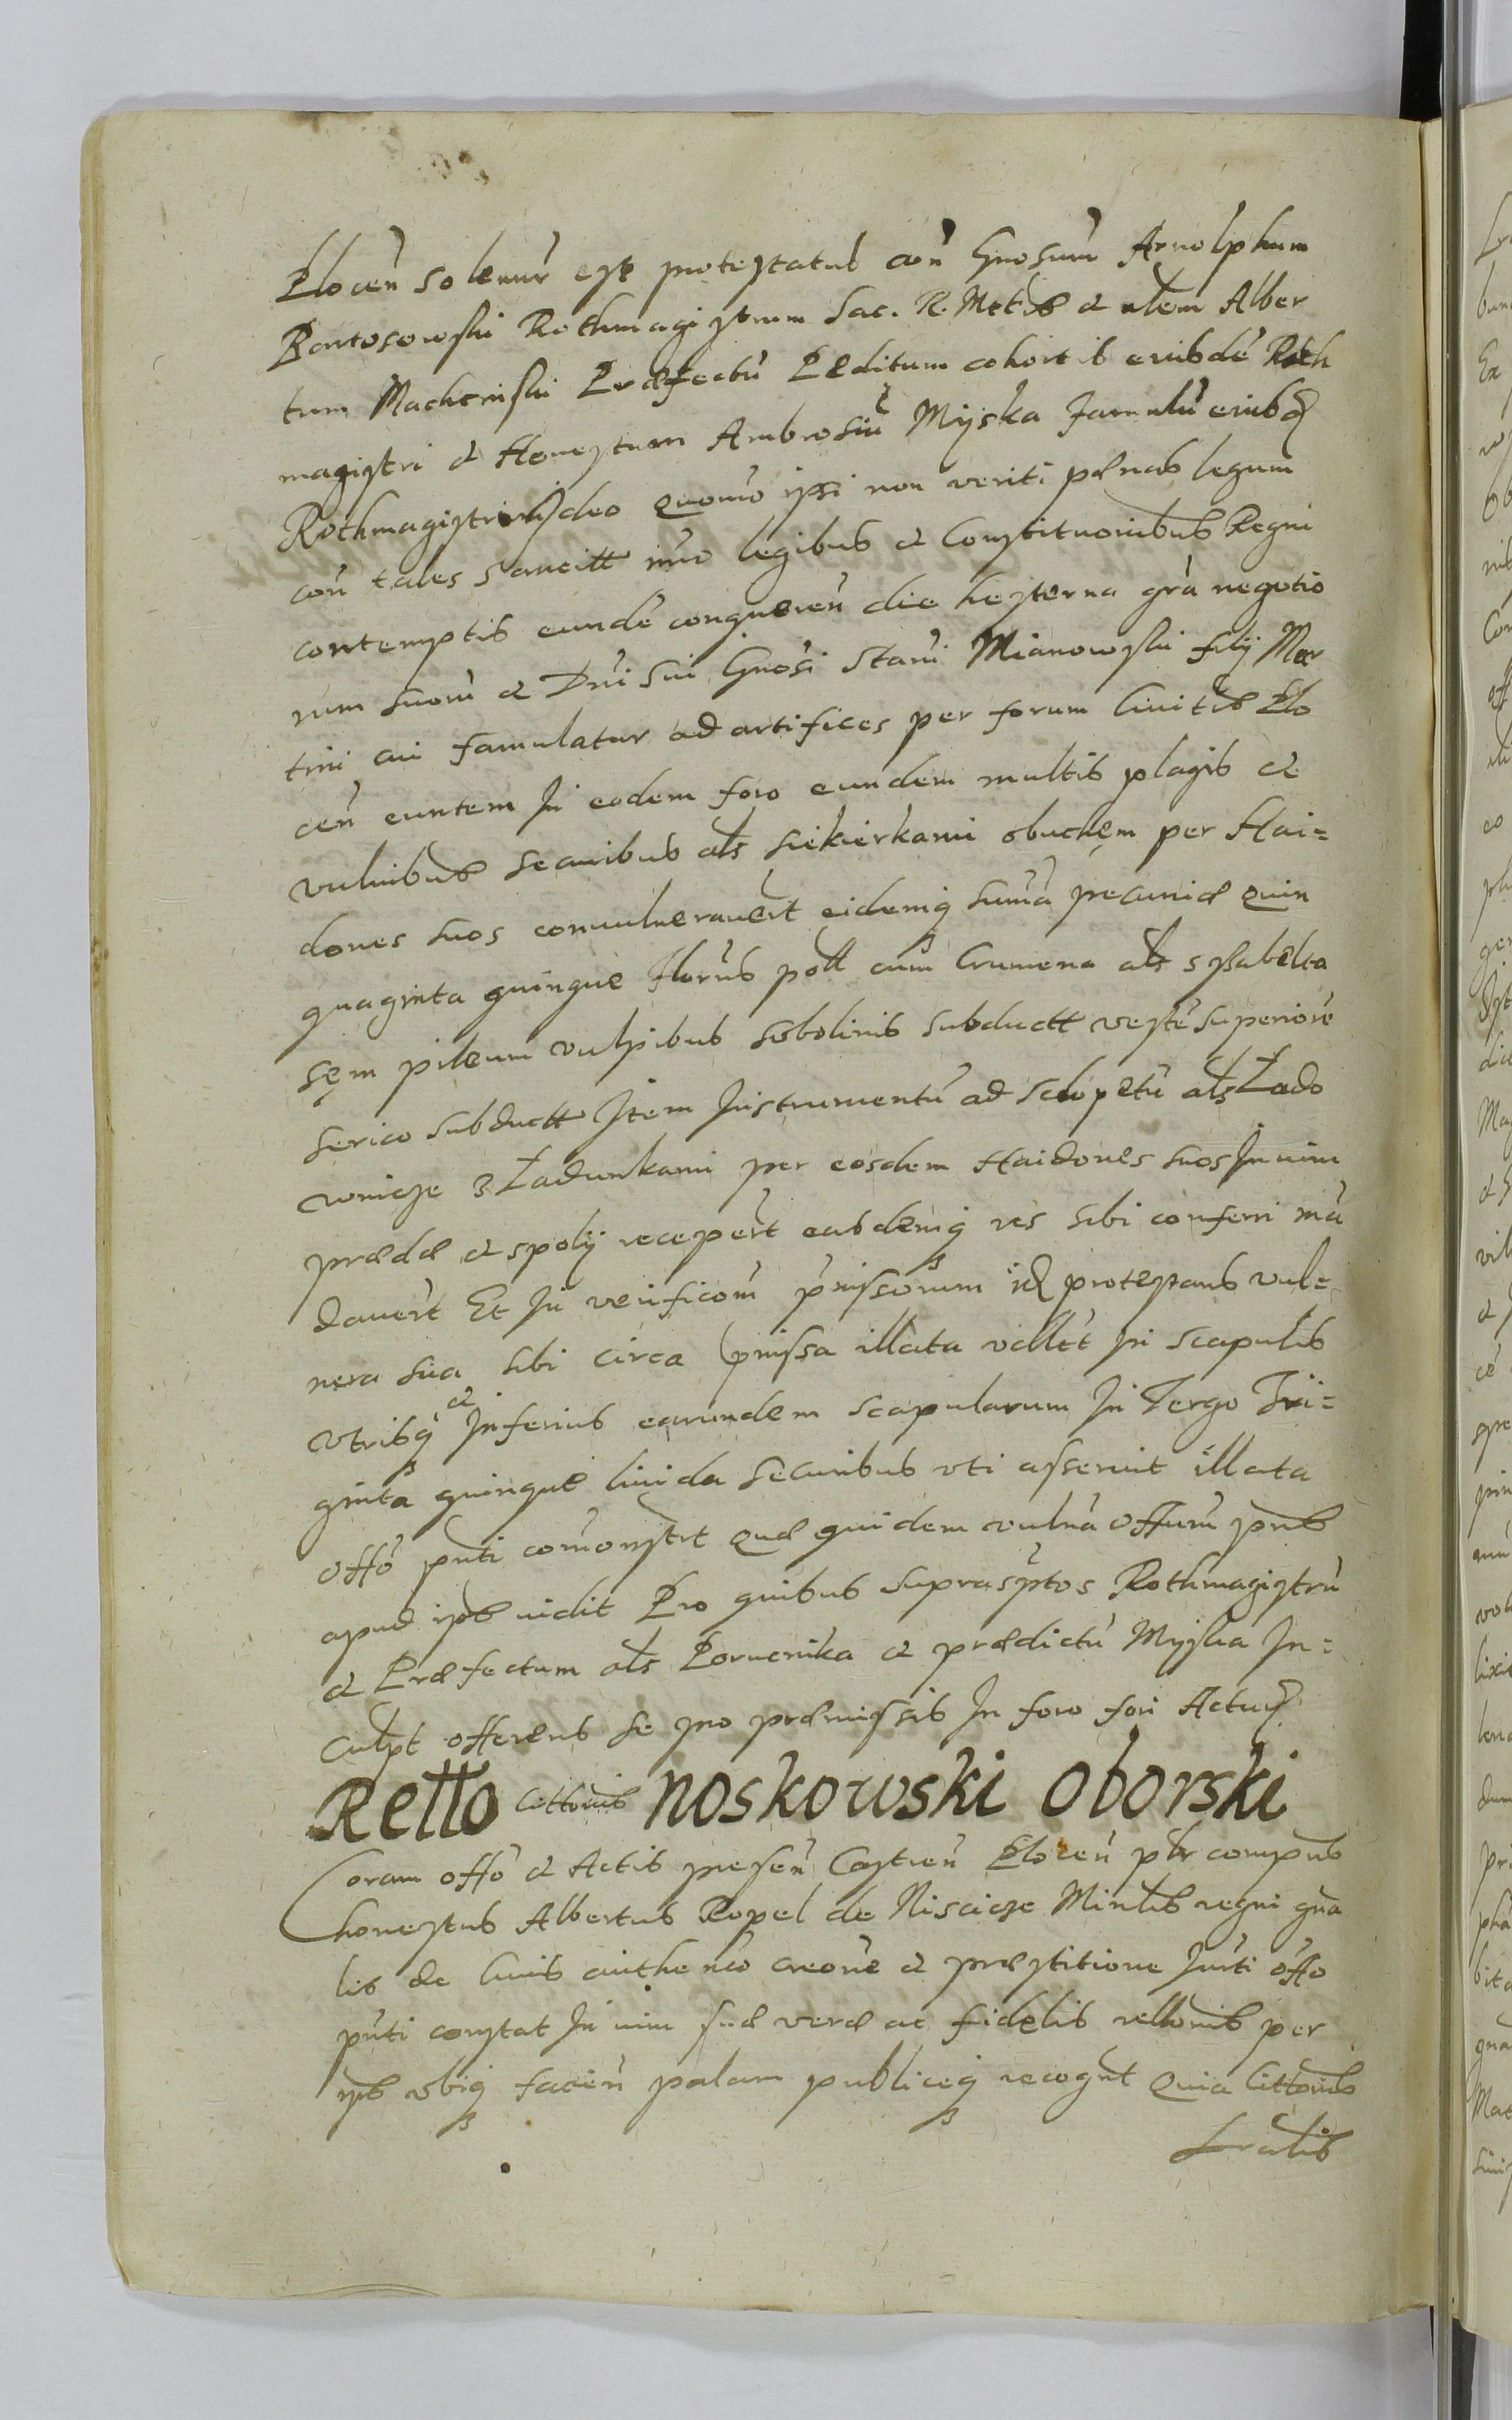 Plocen̄ solenr̄ est protestatus con̄ Gnosum Arnolphum
Bartosowski Rothmagistrum Sac. R. Mttis & nlem Alber
tum Machcinski Præfectū Peditum cohortis eiusdē Roth
magistri & Honestum Ambrosiū Myska famulū eiusdͫ
Rothmagistri ideo quomō ipsi non veriti pænas legum
con̄ tales sancitt imo legibus & Constitūonibus Regni
contemptis eundē conqueren̄ die hesterna grā negotio
rum suorū & Dni sui Gnosi Stani Mianowski filij Mar
tini cui famulatur ad artifices per forum Ciuitis Plo
cen̄ euntem In eodem foro eundem multis plagis &
vulnibus securibus als siekierkami obuchem per Hai=
dones suos conuulnerauert eidemq̨ sumā pecuniæ quin
quaginta quinque florūs poll cum Crumena als s ysabelta
sęm pileum vulpibus sobolinis subductt vestē superiorē
serico subductt Item Instrumentū ad sclopetū als Łado
wnicze z Ładunkami per eosdem Haidones suos In uim
prædæ & spolij recepert easdemq̨ res sibi conferri mā
dauert Et In verificom p̄missorum idͫ protestans vul=
nera sua sibi circa p̄missa illata vidlet In scapulis
vtrisq̨ & Inferius earundem scapularum In Tergo Tri=
ginta quinque liuida securibus vti asseruit illata
offo pnti comonstrt quæ quidem vulnā offium pns
apud ips uidit Pro quibus suprasptos Rothmagistrū
& Præfectum als Porucnika & prædictū Myska In=
culpt offerens se pro præmissis In foro fori Actum
Retto Cittonis Noskowski Oborski
Coram offo & Actis presen̄ Castren̄ Plocen̄ płr compns
honestus Albertus Popel de Niscicze Minlis regni gna
lis de Cuius authenco creone & præstitione Iurti offo
pnti constat In uim suæ veræ ac fidelis rellonis per
ips vbiq̨ facien̄ palam publiceq̨ recognt Quia Cittonis
Lralis